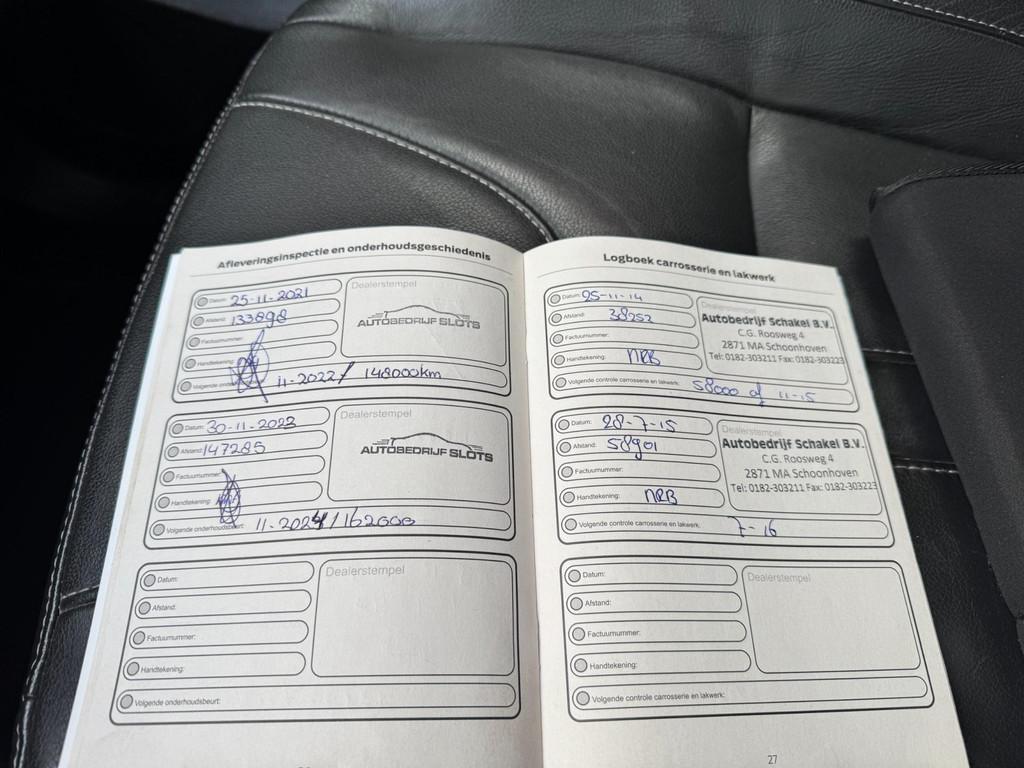 Afleveringsinspectie en onderhoudsgeschiedenis
Datum: 25-11-2021
Afstand: 133898
Factuurnummer:
Handtekening:
Volgende 11-2022/ 148000km
Dealerstempel
AUTOBEDRIJF SLOTS
Datum: 30-11-2023
Afstand: 147285
Factuurnummer:
Handtekening:
Volgende onderhoudsbeurt: 11-2024/162000
Dealerstempel
AUTOBEDRIJF SLOTS
Datum:
Afstand:
Factuurnummer:
Handtekening:
Volgende onderhoudsbeurt:
Dealerstempel
Logboek carrosserie en lakwerk
Datum: 25-11-14
Afstand: 38252
Factuurnummer:
Handtekening: NRB
Volgende controle carrosserie en lakwerk: 58000 of 11-15
Dealerstempel
Autobedrijf Schakel B.V.
C.G. Roosweg 4
2871 MA Schoonhoven
Tel: 0182-303211 Fax: 0182-303223
Datum: 28-7-15
Afstand: 58901
Factuurnummer:
Handtekening: NRB
Volgende controle carrosserie en lakwerk: 7-16
Dealerstempel
Autobedrijf Schakel B.V.
C.G. Roosweg 4
2871 MA Schoonhoven
Tel: 0182-303211 Fax: 0182-303223
Datum:
Afstand:
Factuurnummer:
Handtekening:
Volgende controle carrosserie en lakwerk:
Dealerstempel
27